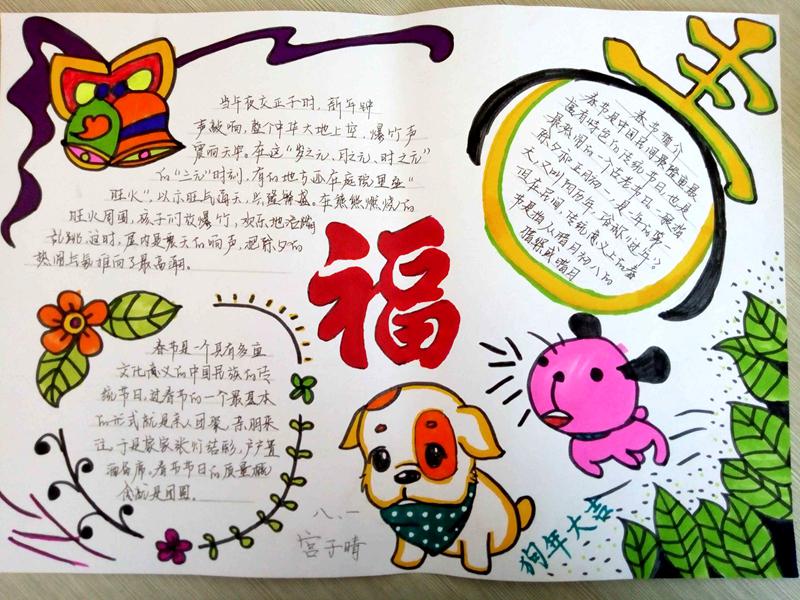 当年夜交正子时，新年钟
声敲响，整个中华大地上空，爆竹声
震响天宇。在这“岁之元、月之元、时之元”
的“三元”时刻，有的地方还在庭院里垒“
旺火”，以示旺气通天，兴隆繁盛。在熊熊燃烧的
旺火周围，孩子们放爆竹，欢乐地活蹦
乱跳，这时，屋内是
的响声，把除夕的
热闹气氛推向了最高潮。
春节是一个具有多重
文化意义的中国民族的传
统节日，过春节的一个最基本
的形式就是亲人团聚、亲朋来
往，于是家家张灯结彩，户户置
酒备席。春节节日的质量概
念就是团圆。
福
八、一
宫子晴
年
春节简介
春节是中国民间最隆重最
富有特色的传统节日，也是
最热闹的一个古老节日。一般指
除夕和正月初一，是一年的第一
天，又叫阴历年，俗称“过年”。
但在民间，传统意义上的春
节是指从腊月初八的
腊祭或腊月
狗年大吉